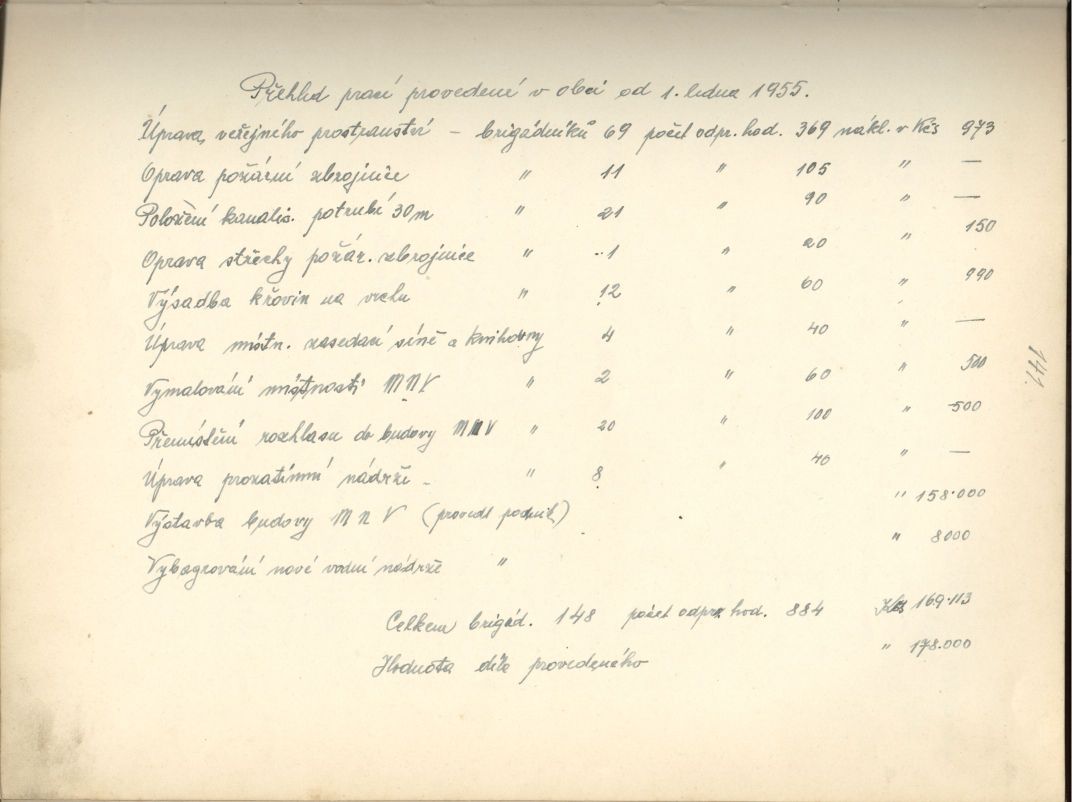 Přehled prací provedené v obci od 1. ledna 1955.
Úprava veřejného prostranství - brigádníků 69 počet odpr. hod. 369 nákl. v Kčs 973
Oprava požární zbrojnice " 11 " 105 " —
Položení kanalis. potrubí 30 m " 21 " 90 " —
Oprava střechy požár. zbrojnice " 1 " 20 " 150
Výsadba křovin na vrchu " 12 " 60 " 990
Úprava místn. zasedací síně a knihovny 4 " 40 " —
Vymalování místností MNV " 2 " 60 " 500
Přemístění rozhlasu do budovy MNV " 20 " 100 " 500
Úprava prozatímní nádrže - " 8 " 40 " —
Výstavba budovy MNV (provedl podnik) " 158.000
Vybagrování nové vodní nádrže " " 8000
Celkem brigád. 148 počet odpr. hod. 884 Kčs 169.113
Hodnota díla provedeného " 178.000
141.